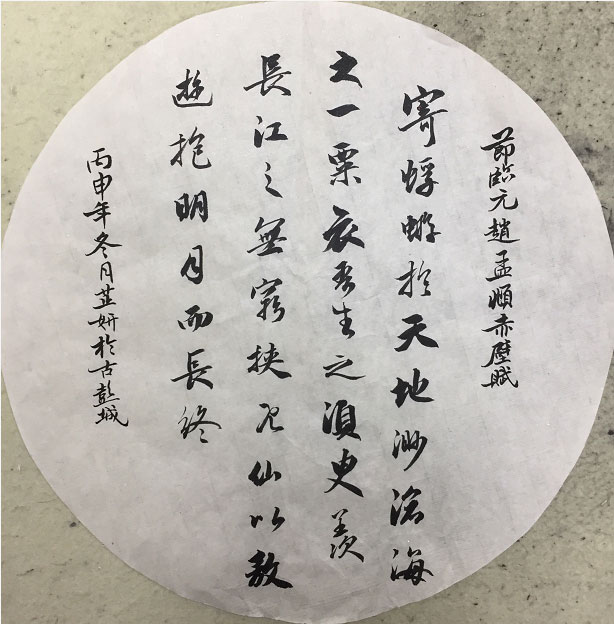 節臨元趙孟頫赤壁賦
寄蜉蝣於天地渺滄海
之一粟哀吾生之須臾羨
長江之無窮挾飛仙以敖
遊抱明月而長終
丙申年冬月芷妍於古彭城